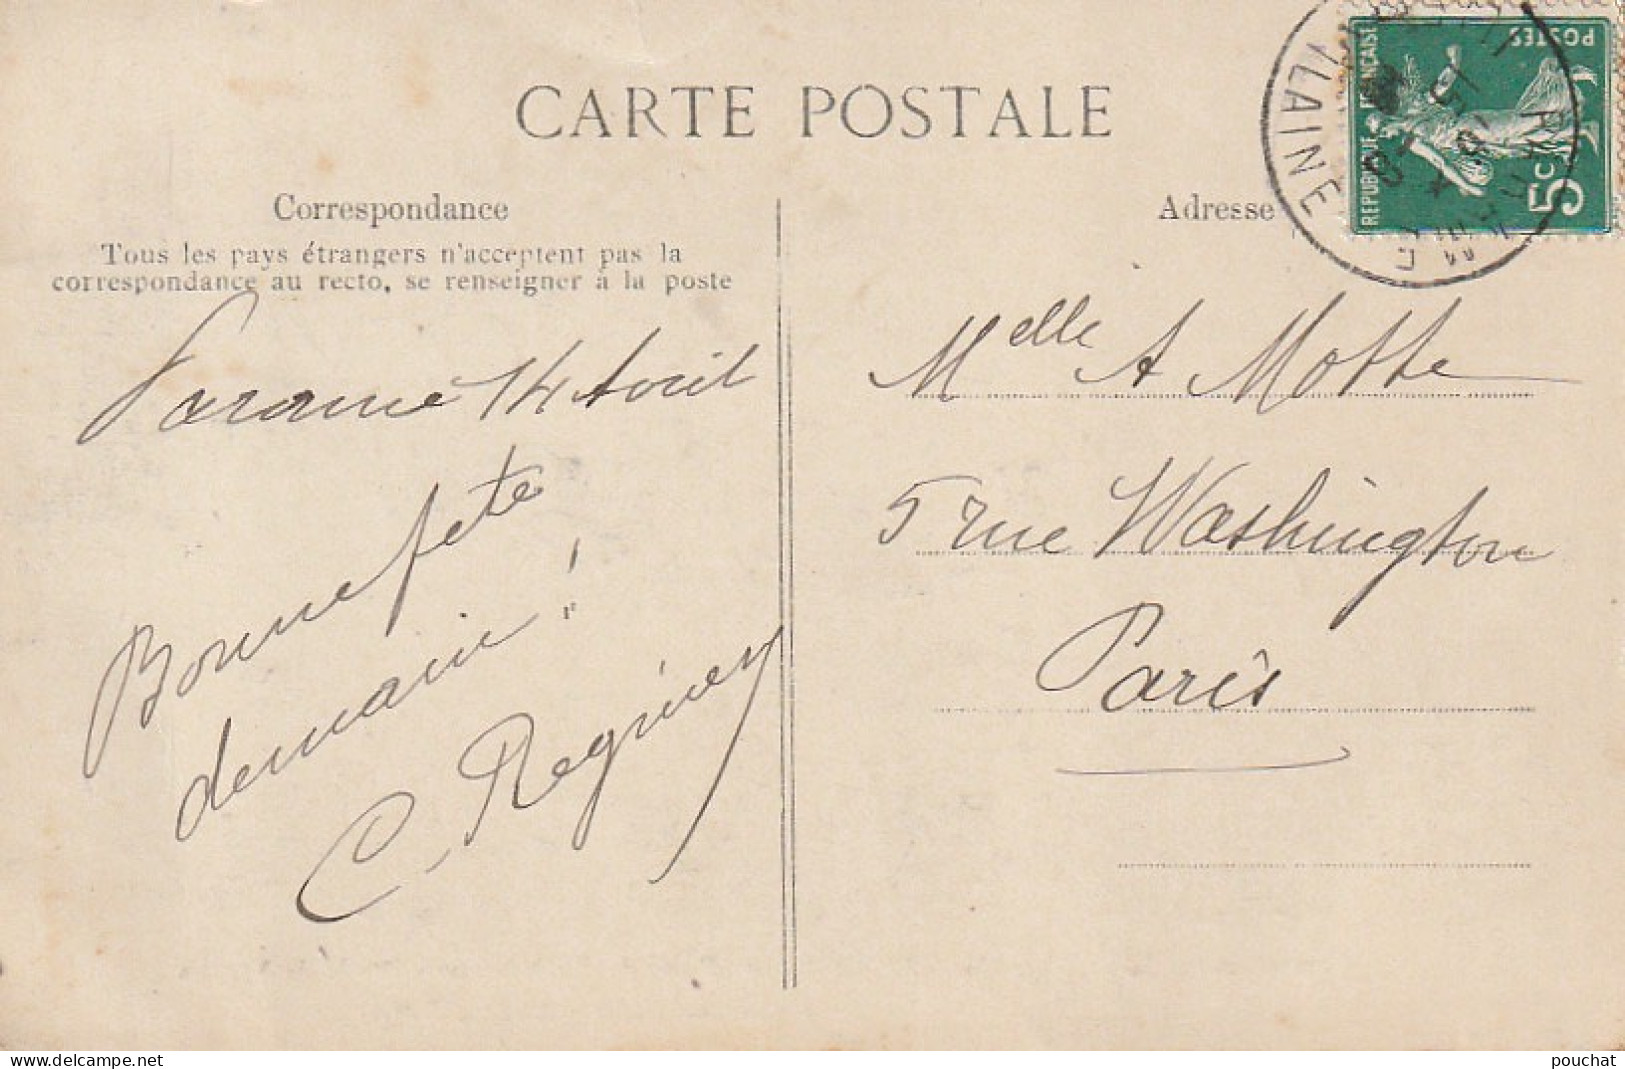 CARTE POSTALE
Correspondance
Tous les pays étrangers n'acceptent pas la
correspondance au recto, se renseigner à la poste
Paramé 14 Avril
Bonne fête
demain !
C. Reginey
Adresse
Melle A Motte
5 rue Washington
Paris
REPUBLIQUE FRANÇAISE
POSTES
5c
PARAMÉ
ILLE
VILAINE
www.delcampe.net
pouchat